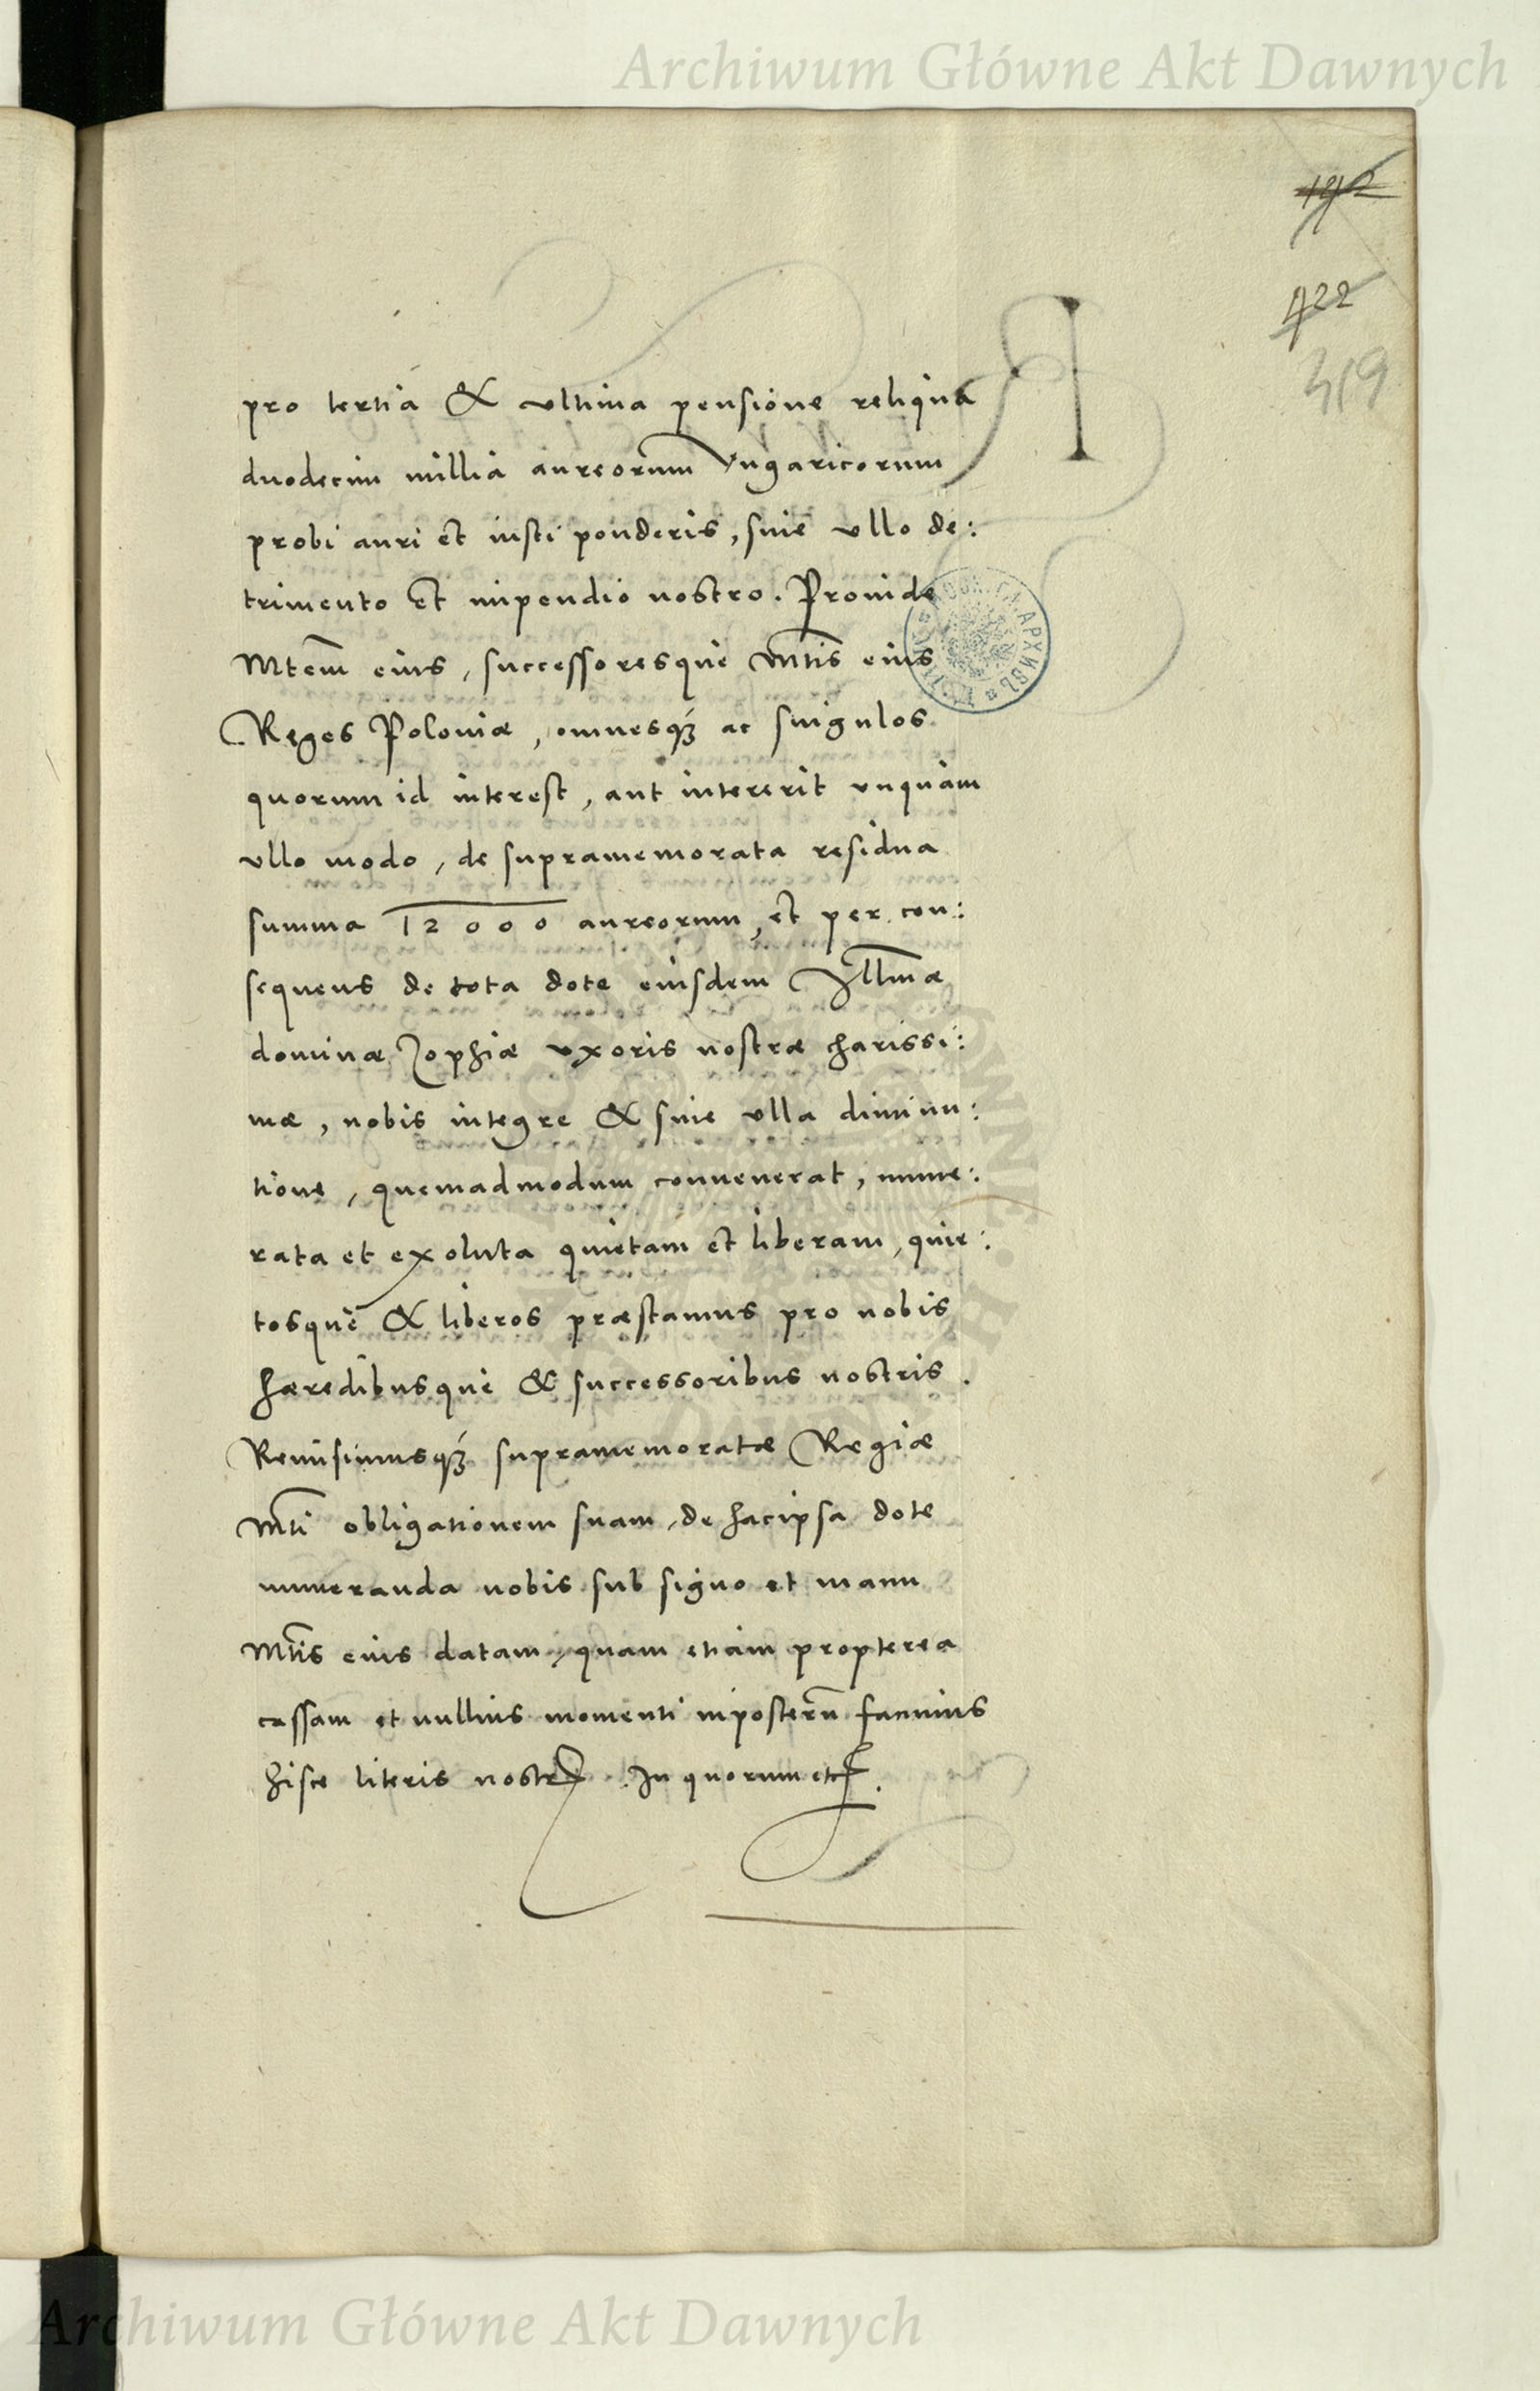 Archiwum Główne Akt Dawnych
142
422
319
pro tertia & vltima pensione reliqua
duodecim millia aureorum Vngaricorum
probi auri et iusti ponderis, sine vllo de:
trimento et impendio nostro. Proinde
Mtem eius, successoresque Mtis eius
Reges Poloniæ, omnesq3 ac singulos
quorum id interest, aut intererit vnquam
vllo modo, de supramemorata residua
summa 12000 aureorum, et per con:
sequens de tota dote eiusdem Illmæ
dominæ Zophiæ vxoris nostræ charissi:
mæ, nobis integre & sine vlla diminu:
tione, quemadmodum convenerat, nume:
rata et exoluta quietam et liberam, quie:
tosque & liberos præstamus pro nobis
hæredibusque & successoribus nostris.
Remisimusq3 supramemoratæ Regiæ
Mti obligationem suam, de hacipsa dote
numeranda nobis sub signo et manu
Mtis eius datam, quam etiam propterea
cassam et nullius momenti inposterū facimus
hisce literis nostr. In quorum etc.
Archiwum Główne Akt Dawnych